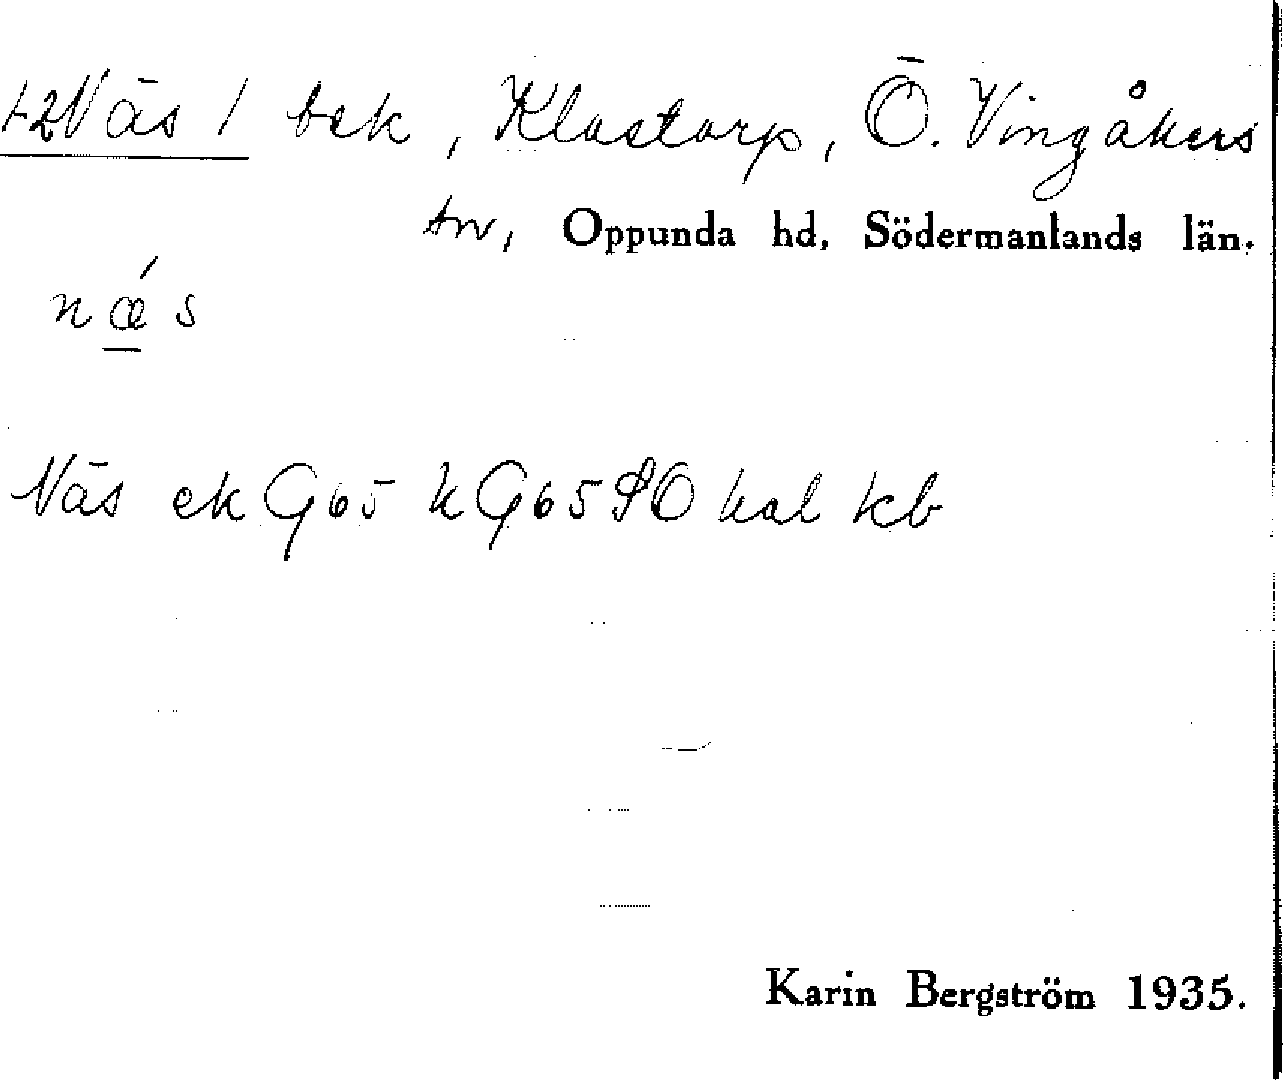 Näs / bek, Klastorp, Ö. Vingåkers
sn, Oppunda hd, Södermanlands län.
næ´s
Näs ek G65 k G65 SO kal kb
Karin Bergström 1935.